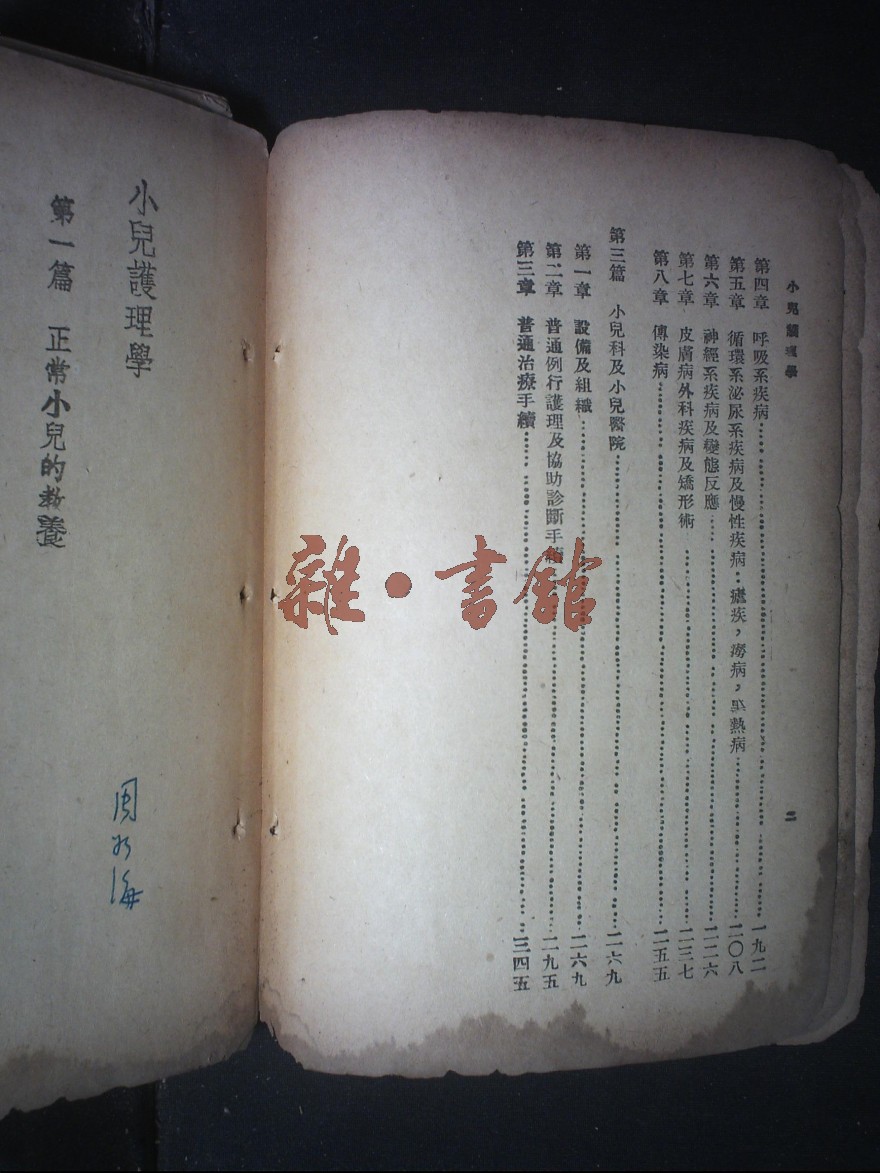 小兒護理學
二
第四章 呼吸系疾病……一九二
第五章 循環系泌尿系疾病及慢性疾病……二〇八
第六章 神經系疾病及變態反應……二二六
第七章 皮膚病外科疾病及矯形術……二三七
第八章 傳染病……二五五
第三篇 小兒科及小兒醫院……二六九
第一章 設備及組織……二六九
第二章 普通例行護理及協助診斷手續……二九五
第三章 普通治療手續……三四五
小兒護理學
第一篇 正常小兒的教養
雜·書館